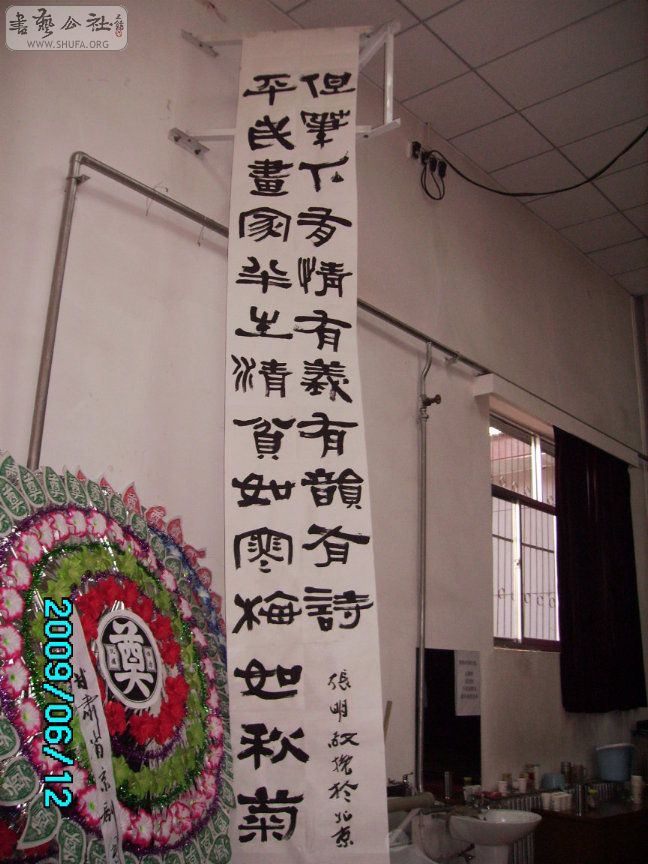 書藝公社
WWW.SHUFA.ORG
平民畫家半生清貧如寒梅如秋菊
但筆下有情有義有韻有詩
張明挽於北京
奠
甘肃省京
2009/06/12